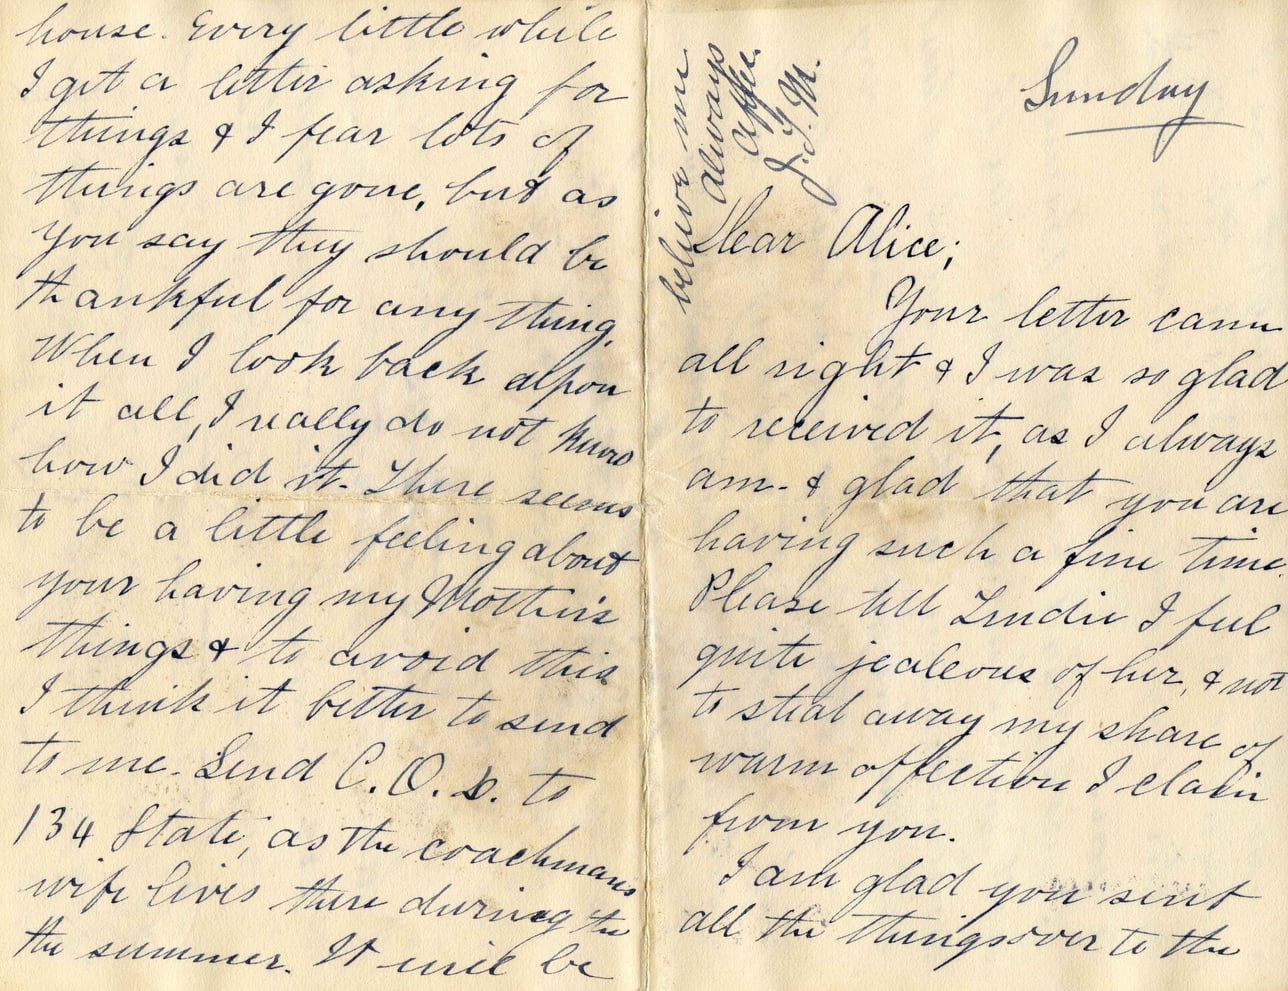 Sunday
Dear Alice;
Your letter came
all right & I was so glad
to received it, as I always
am. & glad that you are
having such a fine time.
Please tell Lindie I feel
quite jealeous of her, & not
to steal away my share of
warm affection I claim
from you.
I am glad you sent
all the things over to the
house. Every little while
I get a letter asking for
things & I fear lots of
things are gone, but as
you say they should be
thankful for any thing.
When I look back upon
it all, I really do not know
how I did it. There seems
to be a little feeling about
your having my Mother's
things & to avoid this
I think it better to send
to me. Send C.O.D. to
134 State, as the coachmans
wife lives there during the
the summer. It will be
believe me
always
affec.
J.T.M.